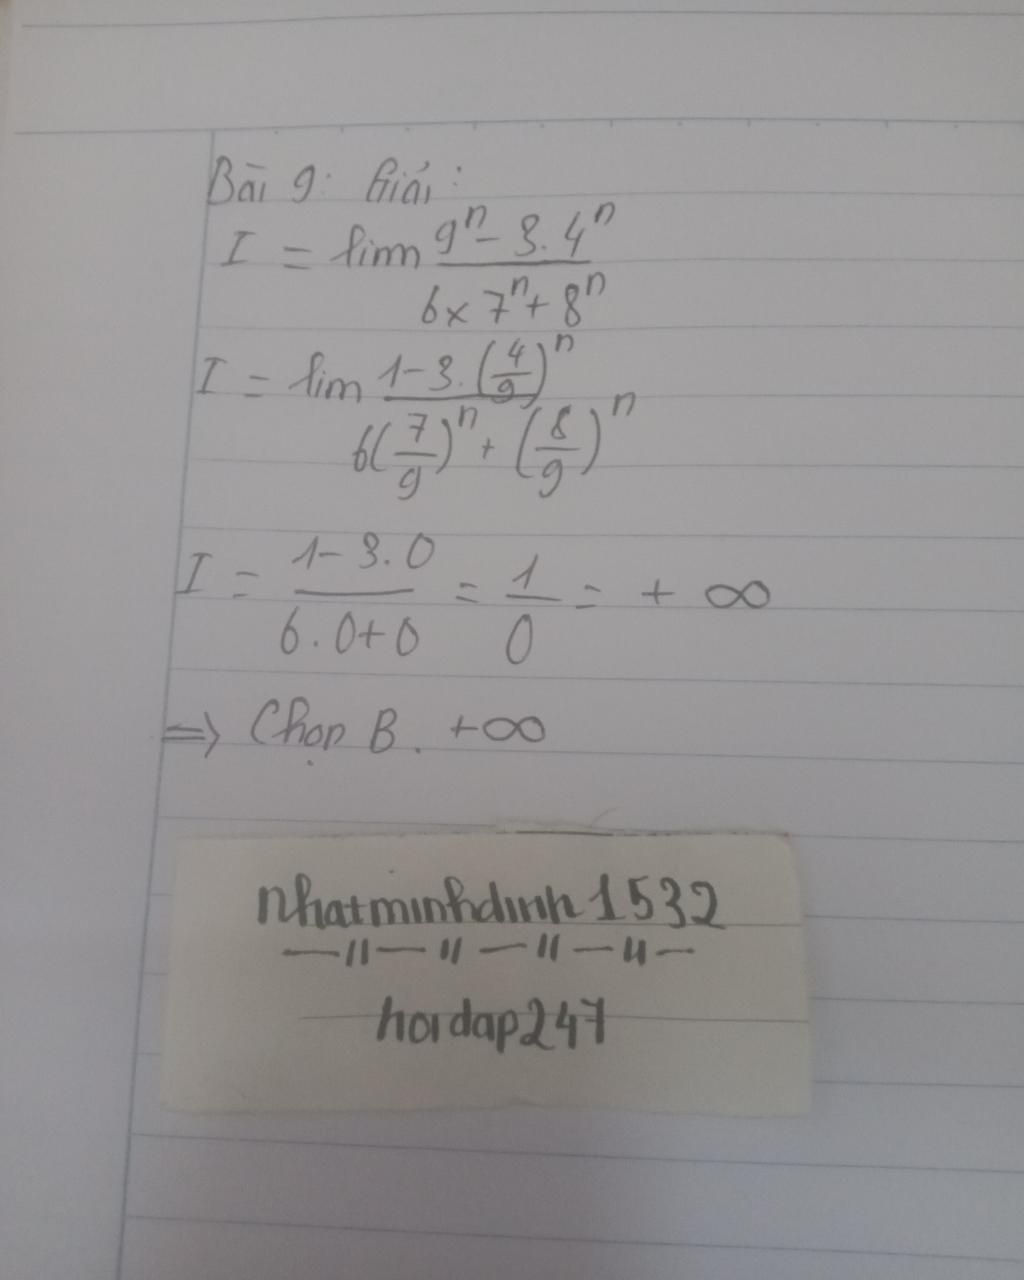 Bài 9: Giải:
I = lim (9^n - 3.4^n)/(6x7^n + 8^n)
I = lim (1-3.(4/9)^n)/(6(7/9)^n + (8/9)^n)
I = (1-3.0)/(6.0+0) = 1/0 = +∞
=> Chọn B. +∞
nhatminhdinh1532
—//—//—//—//—
hoidap247